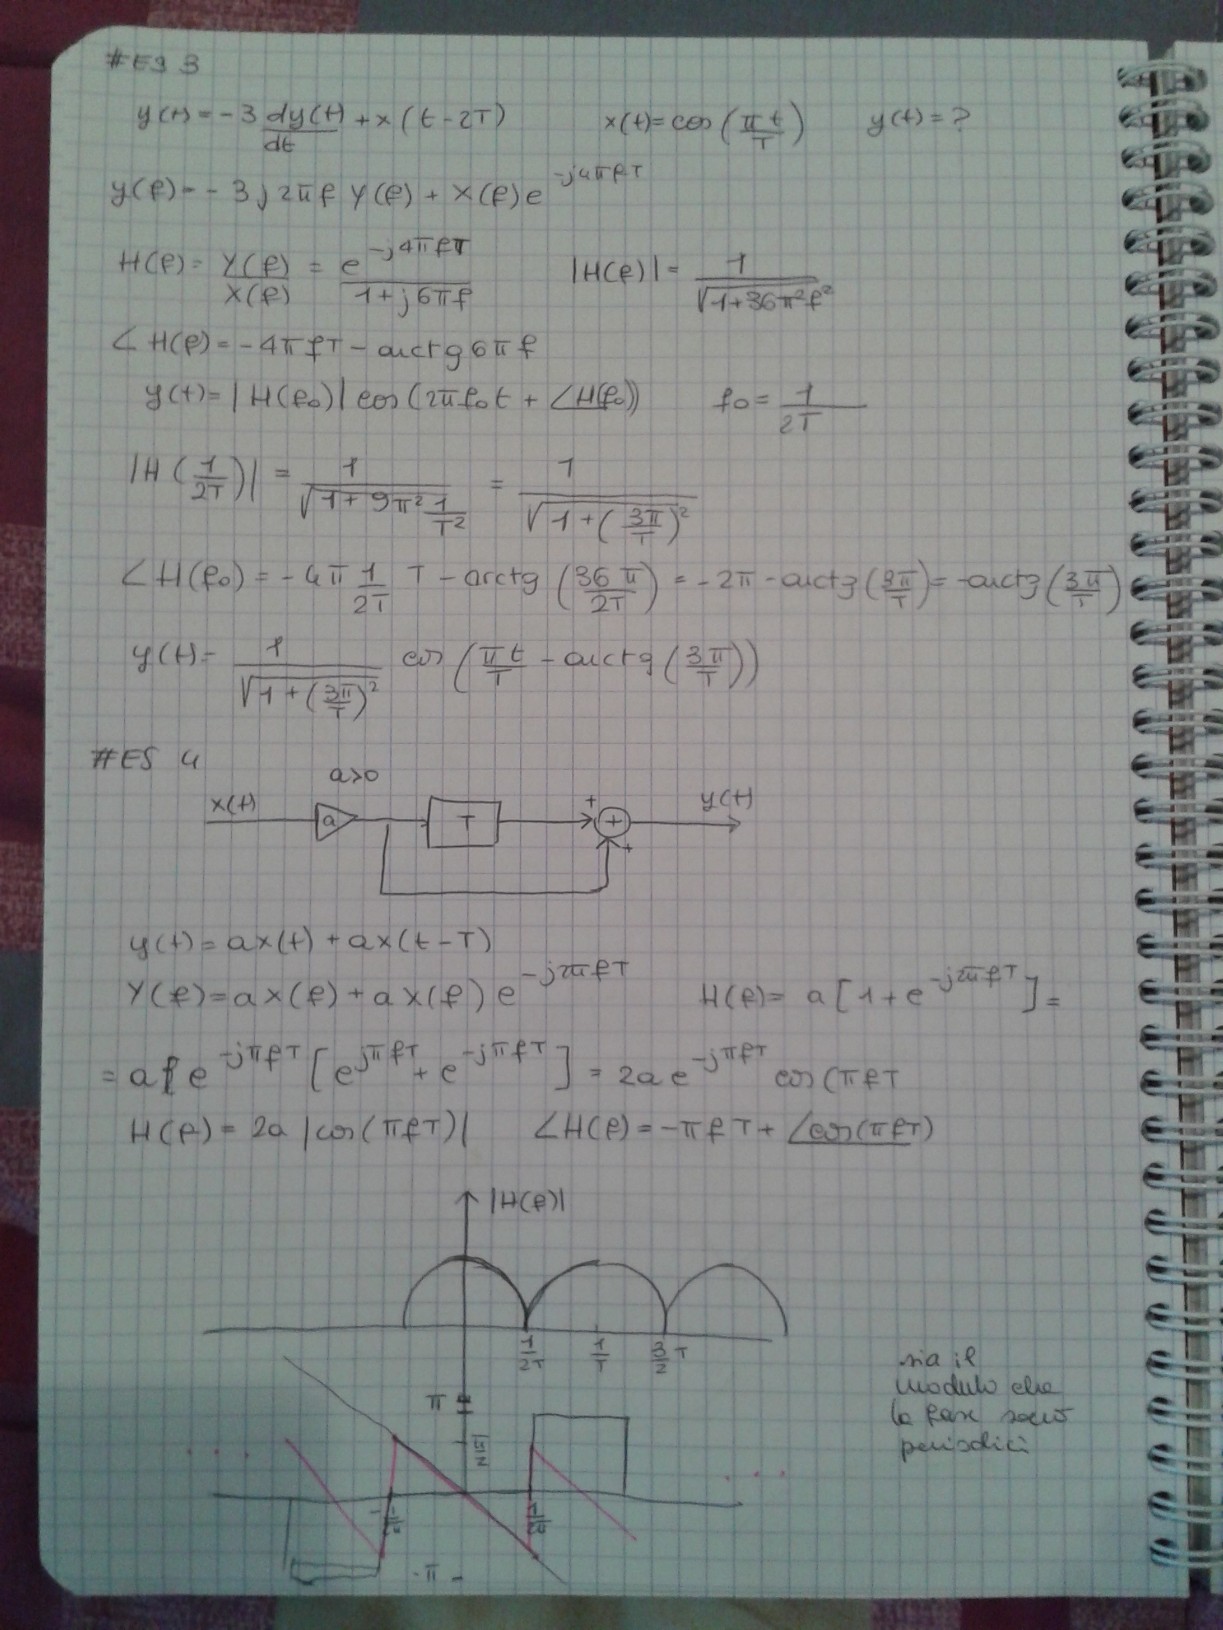 #ES 3
y(t) = -3 dy(t)/dt + x(t-2T)    x(t) = cos(πt/T)    y(t) = ?
y(f) = -3j2πf Y(f) + X(f)e^{-j4πfT}
H(f) = Y(f)/X(f) = e^{-j4πfT}/(1+j6πf)    |H(f)| = 1/√(1+36π²f²)
∠H(f) = -4πfT - arctg 6πf
y(t) = |H(f₀)| cos(2πf₀t + ∠H(f₀))    f₀ = 1/2T
|H(1/2T)| = 1/√(1+9π² 1/T²) = 1/√(1+(3π/T)²)
∠H(f₀) = -4π 1/2T T - arctg(36π/2T) = -2π - arctg(3π/T) = -arctg(3π/T)
y(t) = 1/√(1+(3π/T)²) cos(πt/T - arctg(3π/T))
#ES 4
a>0
x(t) a T + + + y(t)
y(t) = ax(t) + ax(t-T)
Y(f) = aX(f) + aX(f)e^{-j2πfT}    H(f) = a[1+e^{-j2πfT}] =
= a e^{-jπfT} [e^{jπfT} + e^{-jπfT}] = 2a e^{-jπfT} cos(πfT
H(f) = 2a |cos(πfT)|    ∠H(f) = -πfT + ∠cos(πfT)
|H(f)|
1/2T 1/T 3/2 T
sia il
modulo che
la fase sono
periodici
π
π/2
-π